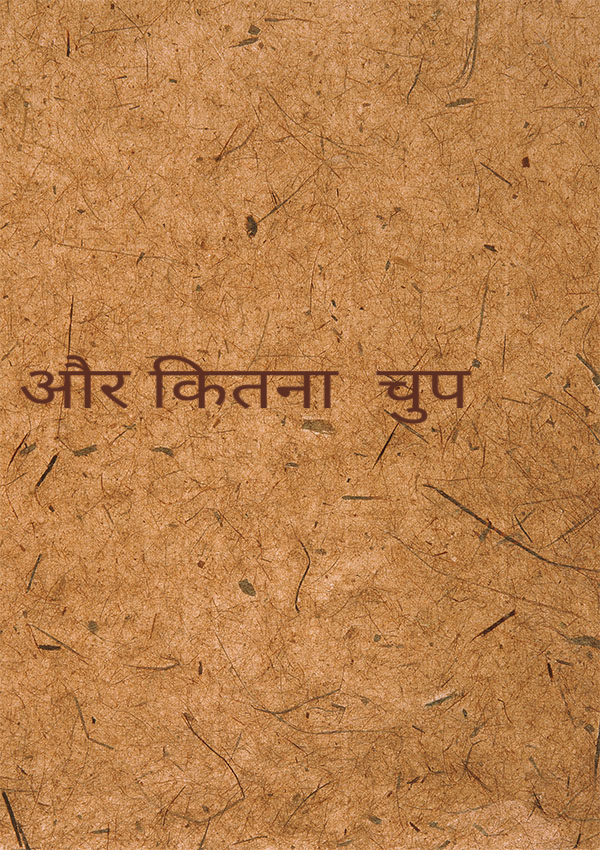 और कितना चुप